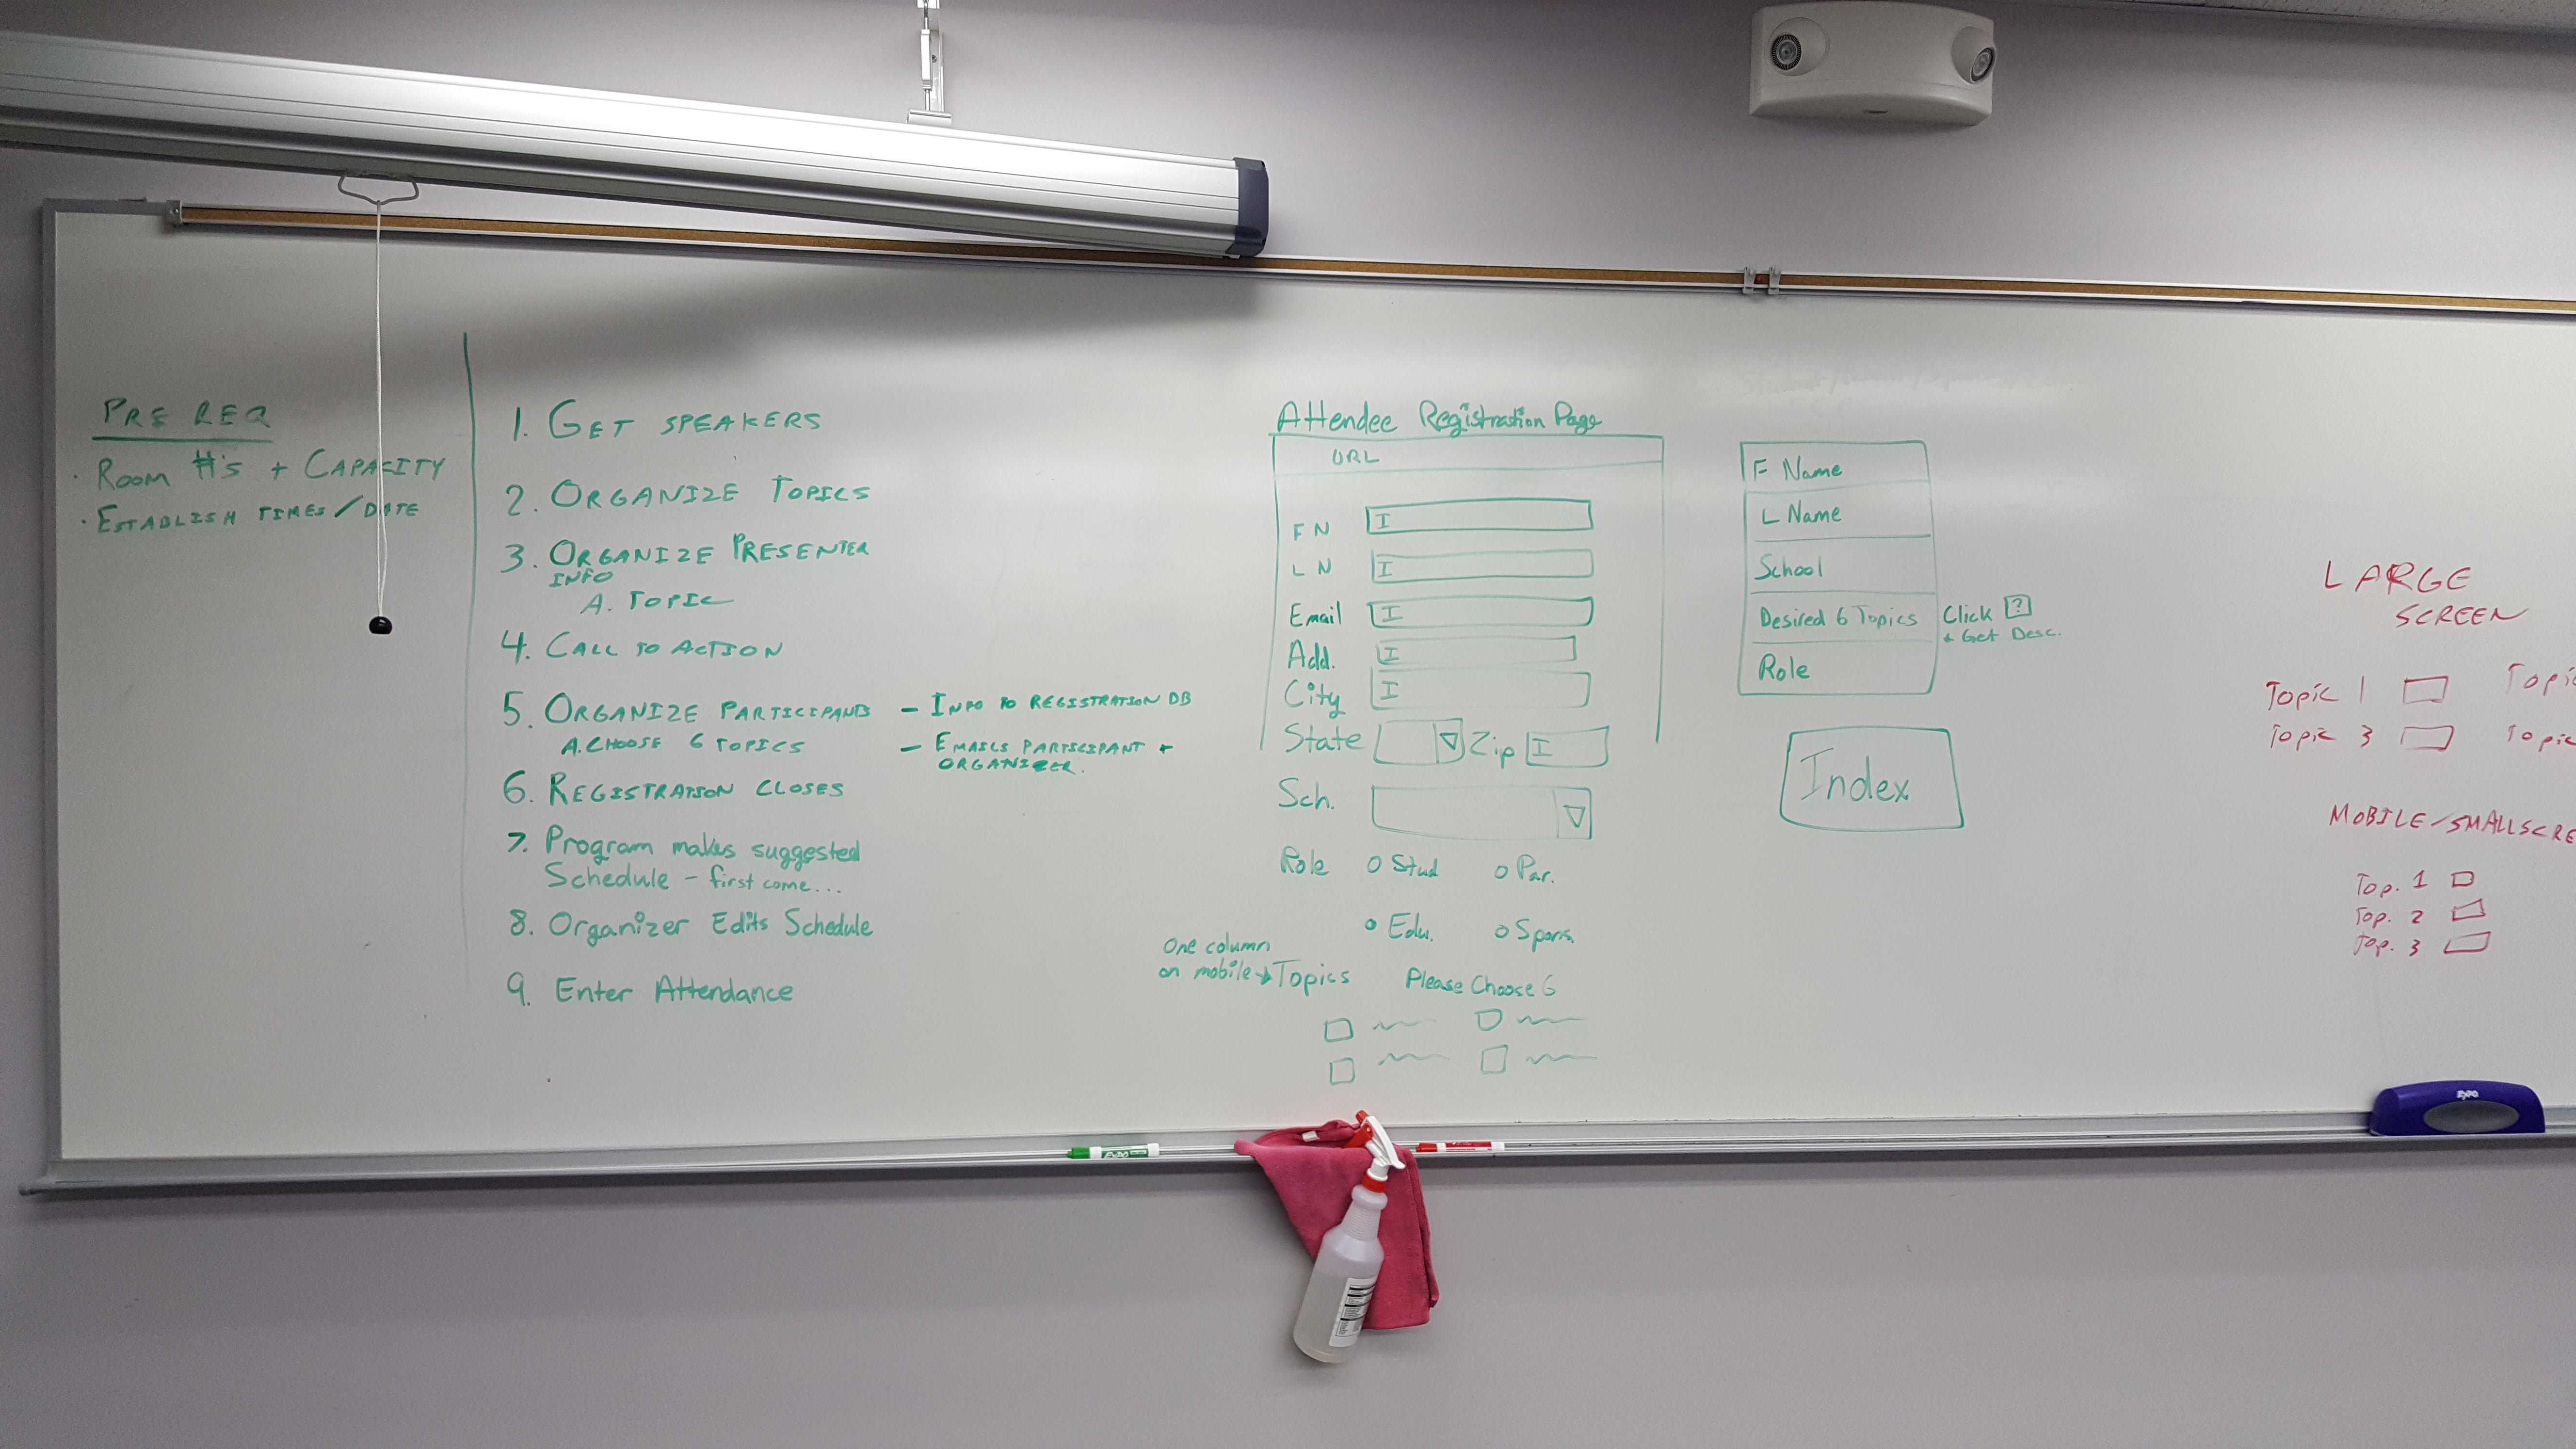 PRE REQ
· ROOM #'s + CAPACITY
· ESTABLISH TIMES/DATE
1. GET SPEAKERS
2. ORGANIZE TOPICS
3. ORGANIZE PRESENTER
INFO
A. TOPIC
4. CALL TO ACTION
5. ORGANIZE PARTICIPANTS
A. CHOOSE 6 TOPICS
– INFO TO REGISTRATION DB
– EMAILS PARTICIPANT +
ORGANIZER.
6. REGISTRATION CLOSES
7. Program makes suggested
Schedule – first come...
8. Organizer Edits Schedule
9. Enter Attendance
Attendee Registration Page
URL
FN I
LN I
Email I
Add. I
City I
State Zip I
Sch.
Role Stud Par.
Edu. Spons.
One column
on mobile → Topics Please Choose 6
F Name
L Name
School
Desired 6 Topics Click ?
+ Get Desc.
Role
Index
LARGE
SCREEN
Topic 1 Topic
Topic 3 Topic
MOBILE/SMALLSCRE
Top. 1
Top. 2
Top. 3
EXPO
EXPO